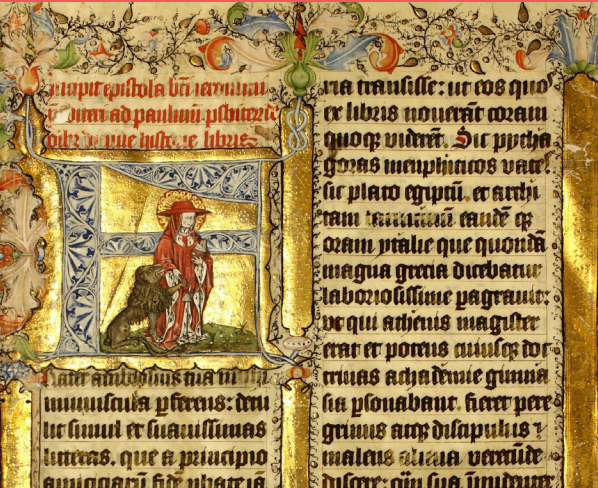 Incipit epistola bti ieronimi
pbiteri ad paulinū psbiterū
hystorie libris
Frater ambrosius tua
munuscula pferens: detu
lit simul et suauissimas
litteras. que a principio
amiciciarū fidē pbate iā
ria transisse: ut eos quos
ex libris nouerāt coram
quoqȝ viderēt. Sic pytha
goras memphiticos vates
sic plato egiptū. et archi
tam eandē qȝ
oram ytalie que quondā
magna grecia dicebatur
laboriosissime pagrauit:
vt qui athenis magister
erat et potens cuiusqȝ doc
trinas achademie gimna
sia psonabant. fieret pere
grinus atqȝ discipulus ⁊
malens aliena verecūde
discere: qȝ sua